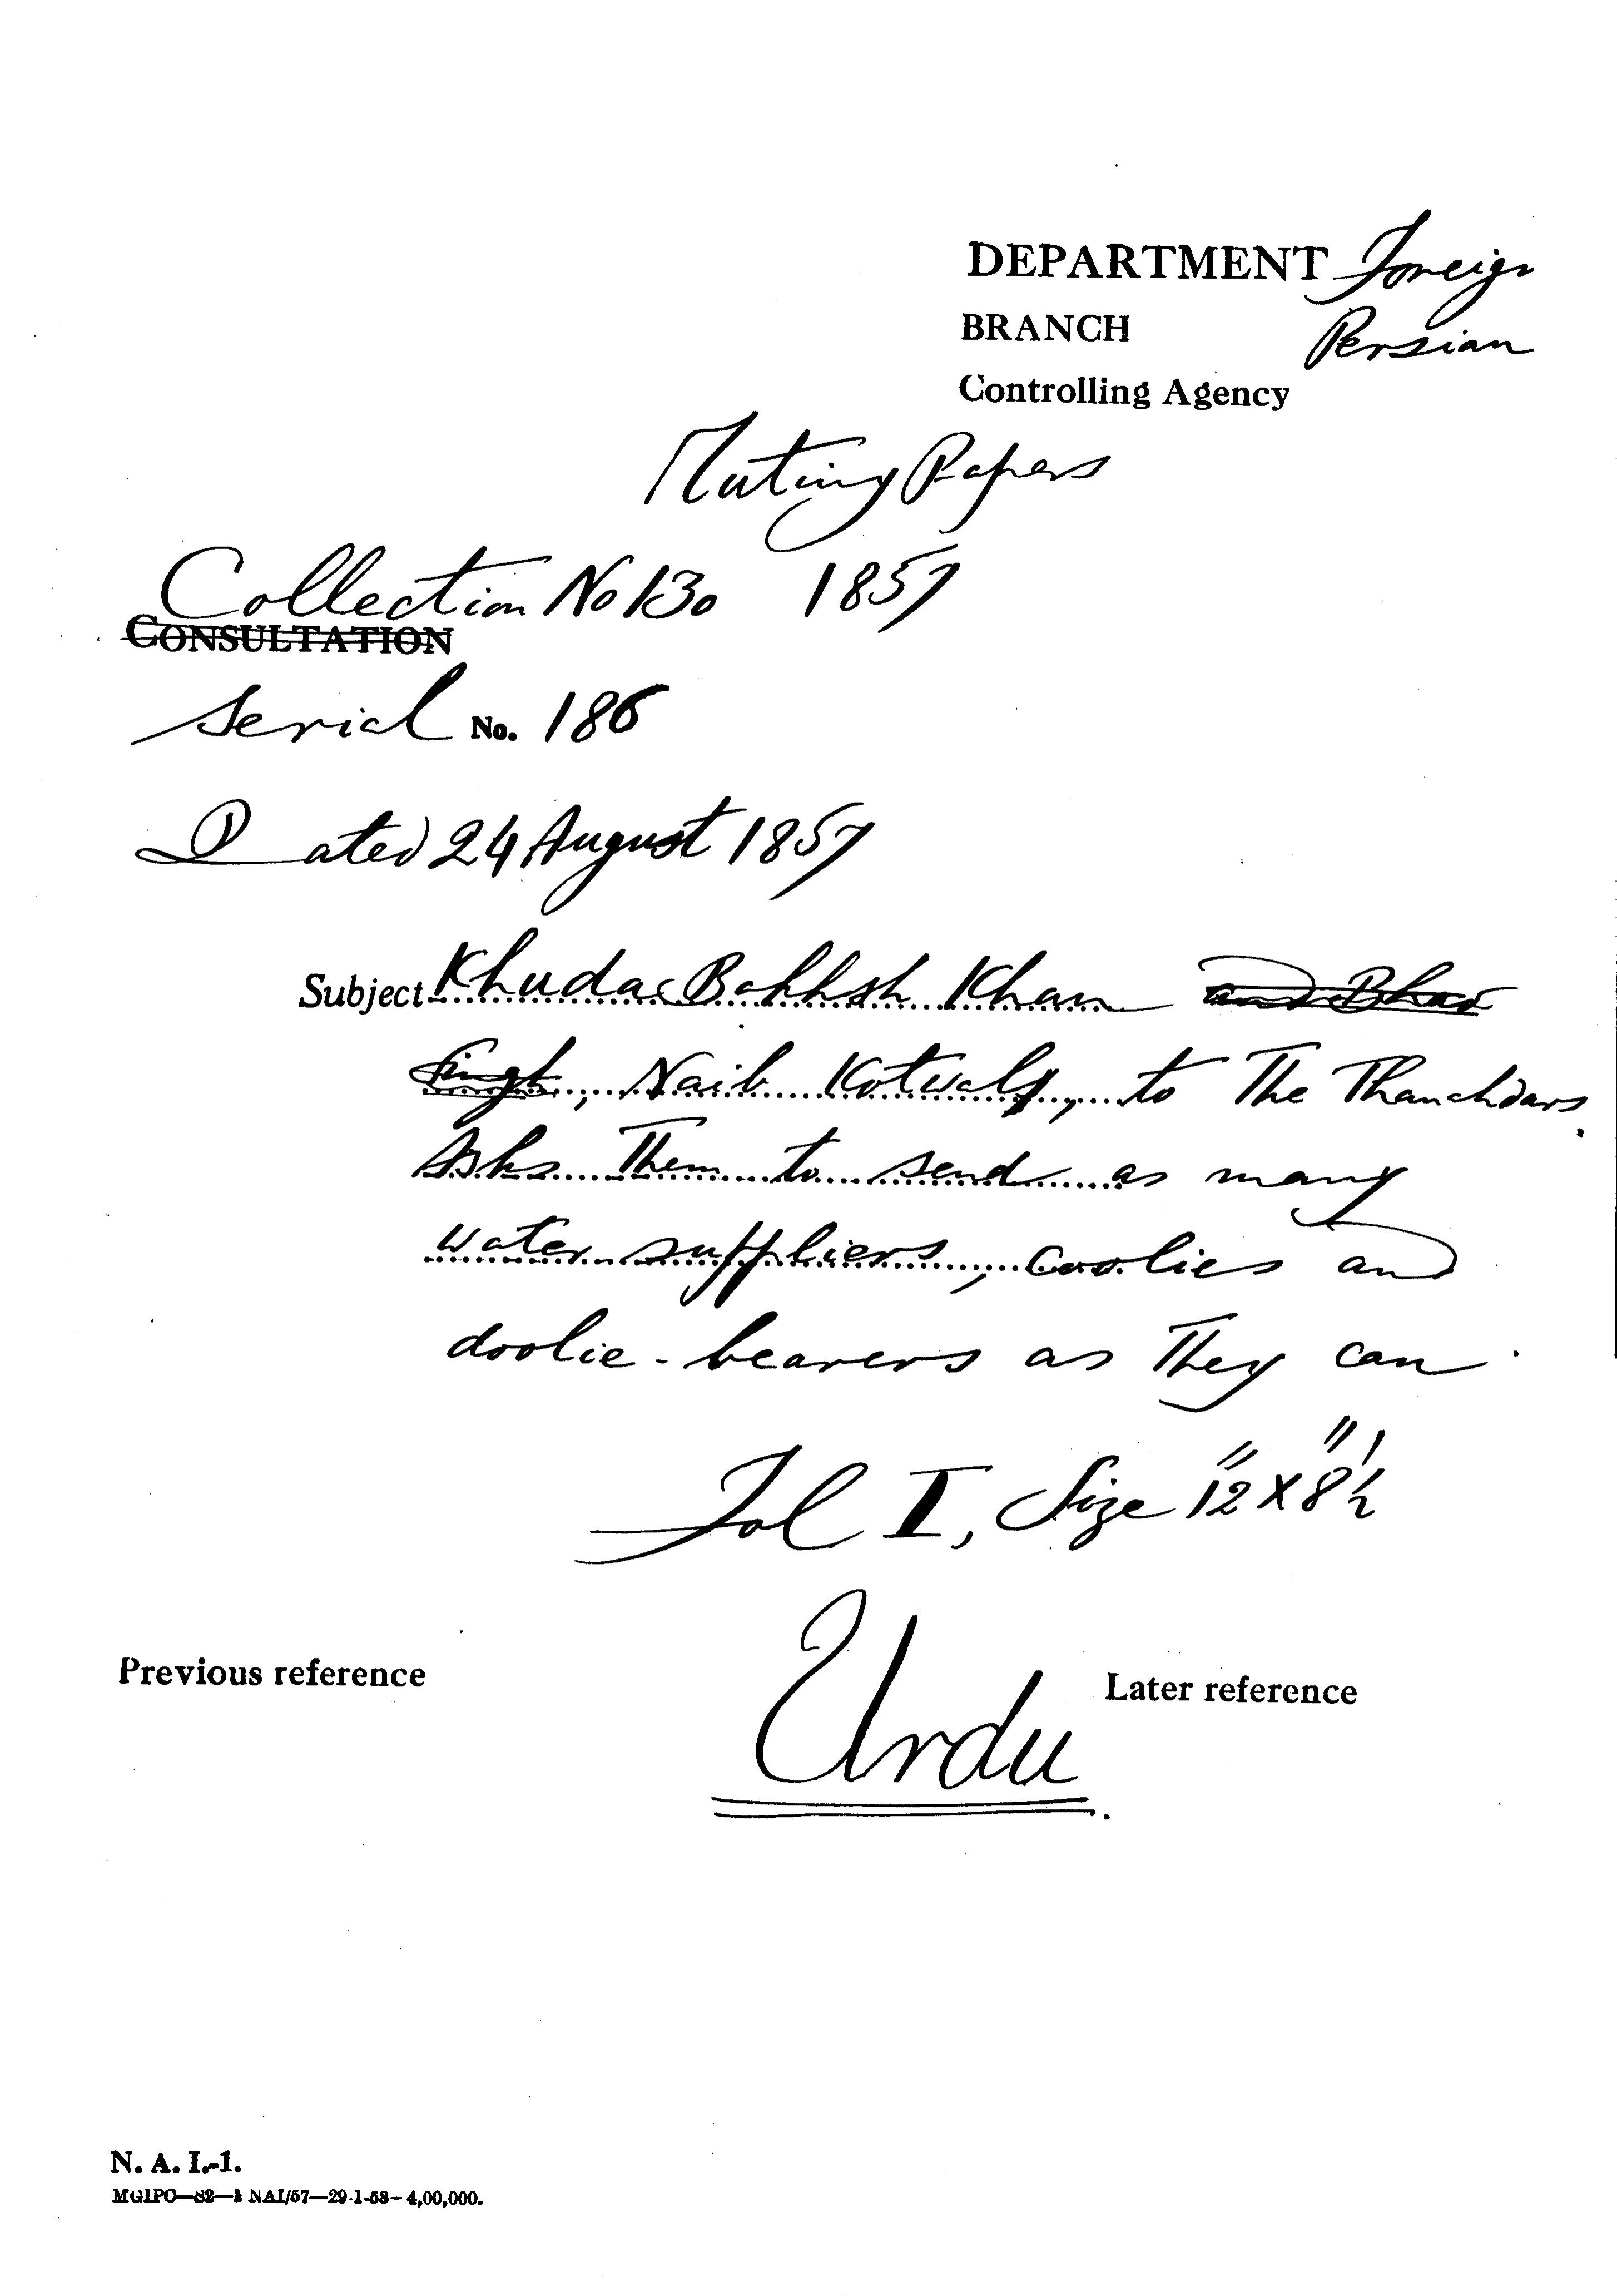 DEPARTMENT Foreign
BRANCH Persian
Controlling Agency
Mutiny Papers
Collection No 130 1857
CONSULTATION
Serial No. 186
Dated 24 August 1857
Subject Khuda Bakhsh Khan and Bhao
Singh, Naib Kotwals, to The Thanahdars.
Asks Them to send as many
water suppliers, coolies and
doolie-bearers as They can.
Fol I, Size 12" x 8" ½
Urdu
Previous reference
Later reference
N. A. I.-1.
MGIPC—S2—1 NAI/57—29-1-58—4,00,000.